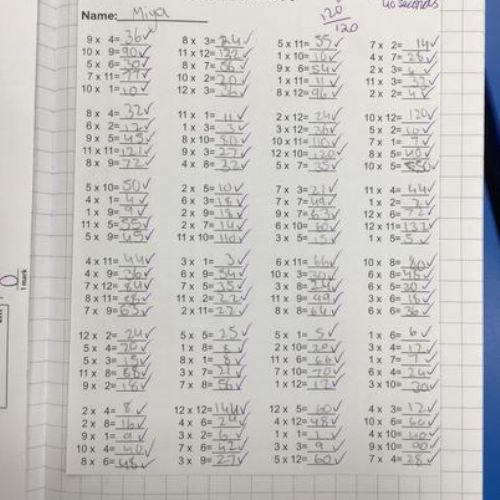 40 seconds
120
120
Name: Miya
9 x 4= 36 8 x 3= 24 5 x 11= 55 7 x 2= 14
10 x 9= 90 11 x 12= 132 1 x 10= 10 4 x 7= 28
5 x 6= 30 8 x 7= 56 9 x 6= 54 2 x 3= 6
7 x 11= 77 10 x 2= 20 1 x 11= 11 11 x 3= 33
10 x 1= 10 12 x 3= 36 8 x 12= 96 2 x 2= 4
8 x 4= 32 11 x 1= 11 2 x 12= 24 10 x 12= 120
6 x 2= 12 1 x 3= 3 3 x 12= 36 5 x 2= 10
9 x 5= 45 8 x 10= 80 10 x 11= 110 7 x 1= 7
11 x 11= 121 9 x 3= 27 12 x 10= 120 8 x 5= 40
8 x 9= 72 4 x 8= 32 5 x 7= 35 10 x 5= 50
5 x 10= 50 2 x 5= 10 7 x 3= 21 11 x 4= 44
4 x 1= 4 6 x 3= 18 7 x 7= 49 1 x 2= 2
1 x 9= 9 2 x 9= 18 9 x 7= 63 12 x 6= 72
11 x 5= 55 2 x 7= 14 6 x 10= 60 12 x 11= 132
5 x 9= 45 11 x 10= 110 3 x 5= 15 1 x 5= 5
4 x 11= 44 3 x 1= 3 6 x 11= 66 10 x 8= 80
4 x 9= 36 6 x 9= 54 10 x 3= 30 6 x 8= 48
7 x 12= 84 7 x 5= 35 3 x 8= 24 6 x 5= 30
8 x 11= 88 11 x 2= 22 11 x 9= 99 3 x 6= 18
7 x 9= 63 2 x 11= 22 8 x 8= 64 6 x 6= 36
12 x 2= 24 5 x 5= 25 5 x 1= 5 1 x 6= 6
5 x 4= 20 1 x 8= 8 2 x 10= 20 3 x 4= 12
5 x 3= 15 8 x 1= 8 11 x 6= 66 1 x 7= 7
11 x 8= 88 3 x 7= 21 7 x 10= 70 6 x 4= 24
9 x 2= 18 7 x 8= 56 1 x 12= 12 3 x 10= 30
2 x 4= 8 12 x 12= 144 12 x 5= 60 4 x 3= 12
2 x 8= 16 4 x 6= 24 4 x 12= 48 10 x 6= 60
9 x 1= 9 3 x 2= 6 1 x 1= 1 4 x 10= 40
10 x 4= 40 7 x 6= 42 3 x 3= 9 9 x 10= 90
8 x 6= 48 3 x 9= 27 5 x 12= 60 7 x 4= 28
1 mark